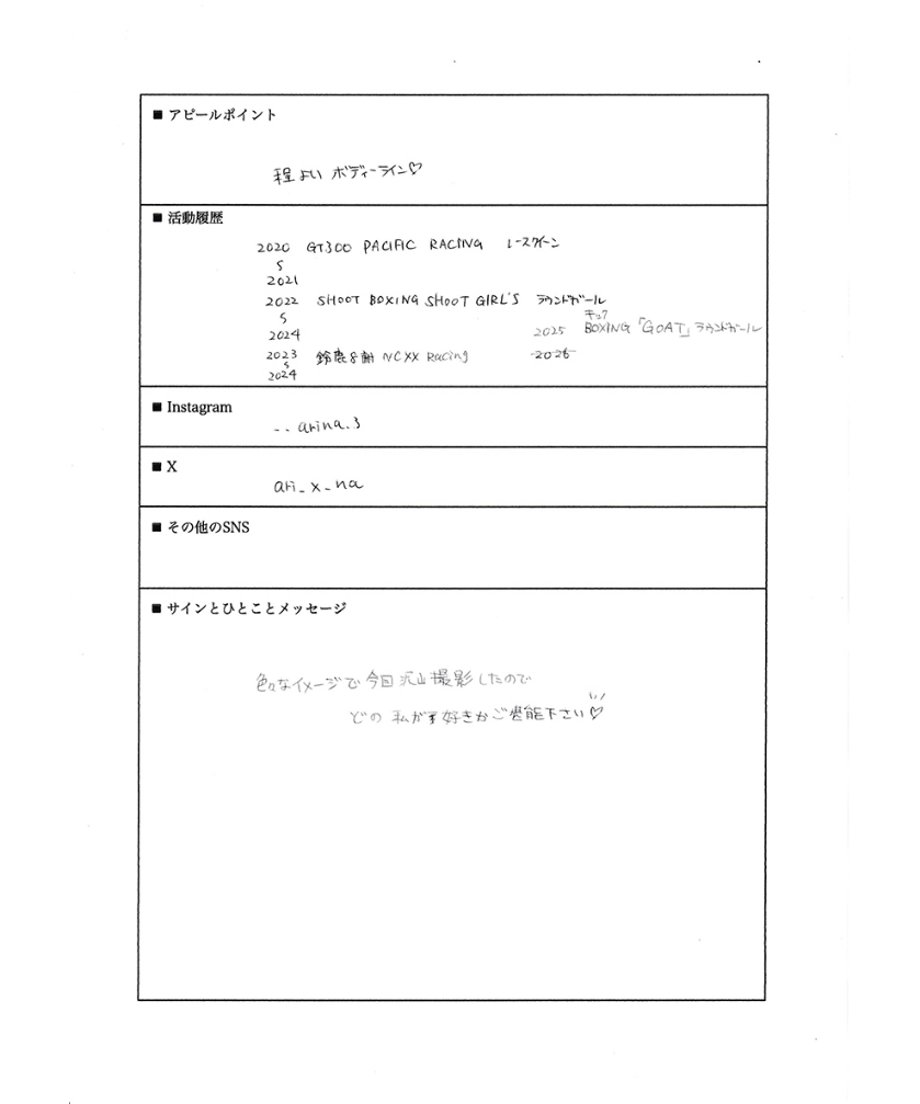 ■ アピールポイント
程よい ボディーライン♡
■ 活動履歴
2020 GT300 PACIFIC RACING レースクイーン
S
2021
2022 SHOOT BOXING SHOOT GIRL'S ラウンドガール
S
2024
2025 BOXING「GOAT」ラウンドガール
2023 鈴鹿8耐 NCXX Racing
S
2024
2026
■ Instagram
--arina.3
■ X
ari_x_na
■ その他のSNS
■ サインとひとことメッセージ
色々なイメージで今回沢山撮影したので
どの 私がす好きかご堪能下さい♡